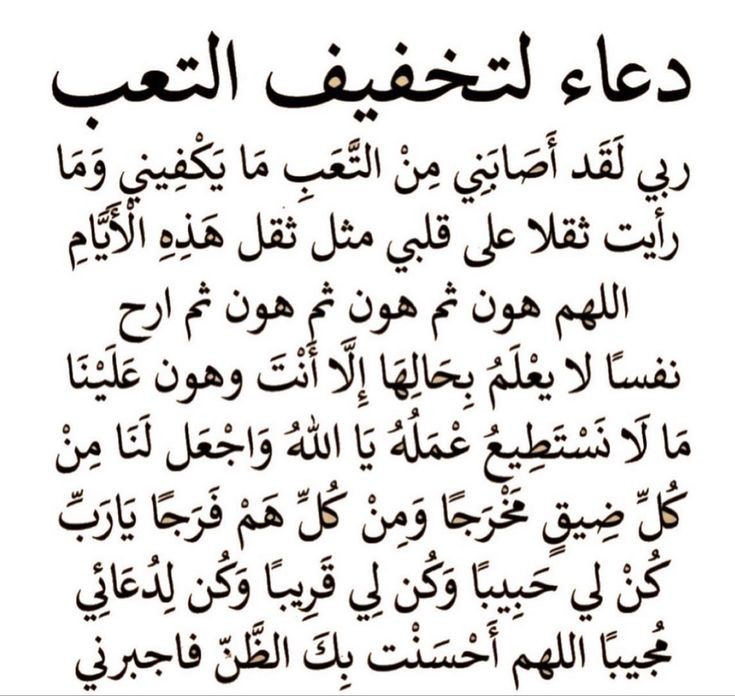 دعاء لتخفيف التعب
ربي لَقَد أَصَابَنِي مِنْ التَّعَبِ مَا يَكْفِينِي وَمَا
رأيت ثقلا على قلبي مثل ثقل هَذِهِ الْأَيَّامِ
اللهم هون ثم هون ثم هون ثم ارح
نفسًا لا يعْلَمُ بِحَالِهَا إِلَّا أَنْتَ وهون عَلَيْنَا
مَا لَا نَسْتَطِيعُ عْمَلُهُ يَا اللهُ وَاجْعَل لَنَا مِنْ
كُلِّ ضِيقٍ مَخْرَجًا وَمِنْ كُلِّ هَمْ فَرَجًا يَارَبِّ
كُنْ لي حَبِيبًا وَكُن لِي قَرِيبًا وَكُن لِدُعَائِي
مُجيبًا اللهم أَحْسَنْت بِكَ الظَّنّ فاجبرني